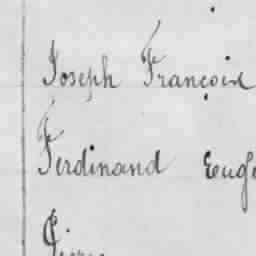 Joseph François
Ferdinand Eugè